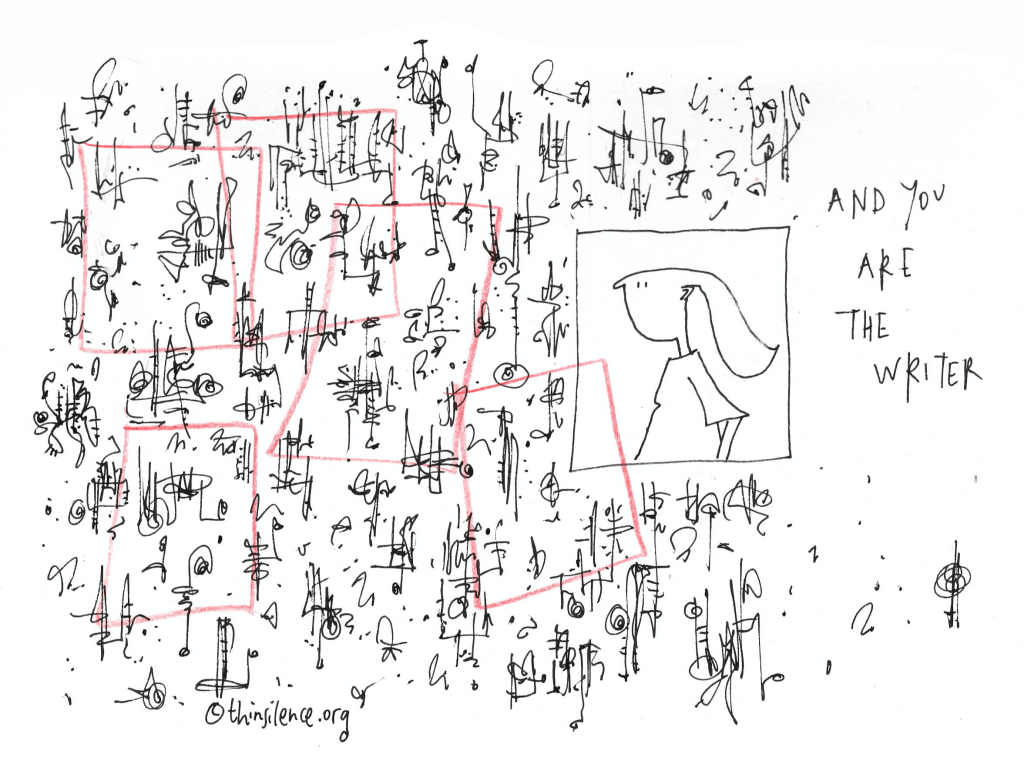 AND YOU
ARE
THE
WRITER
©thinsilence.org